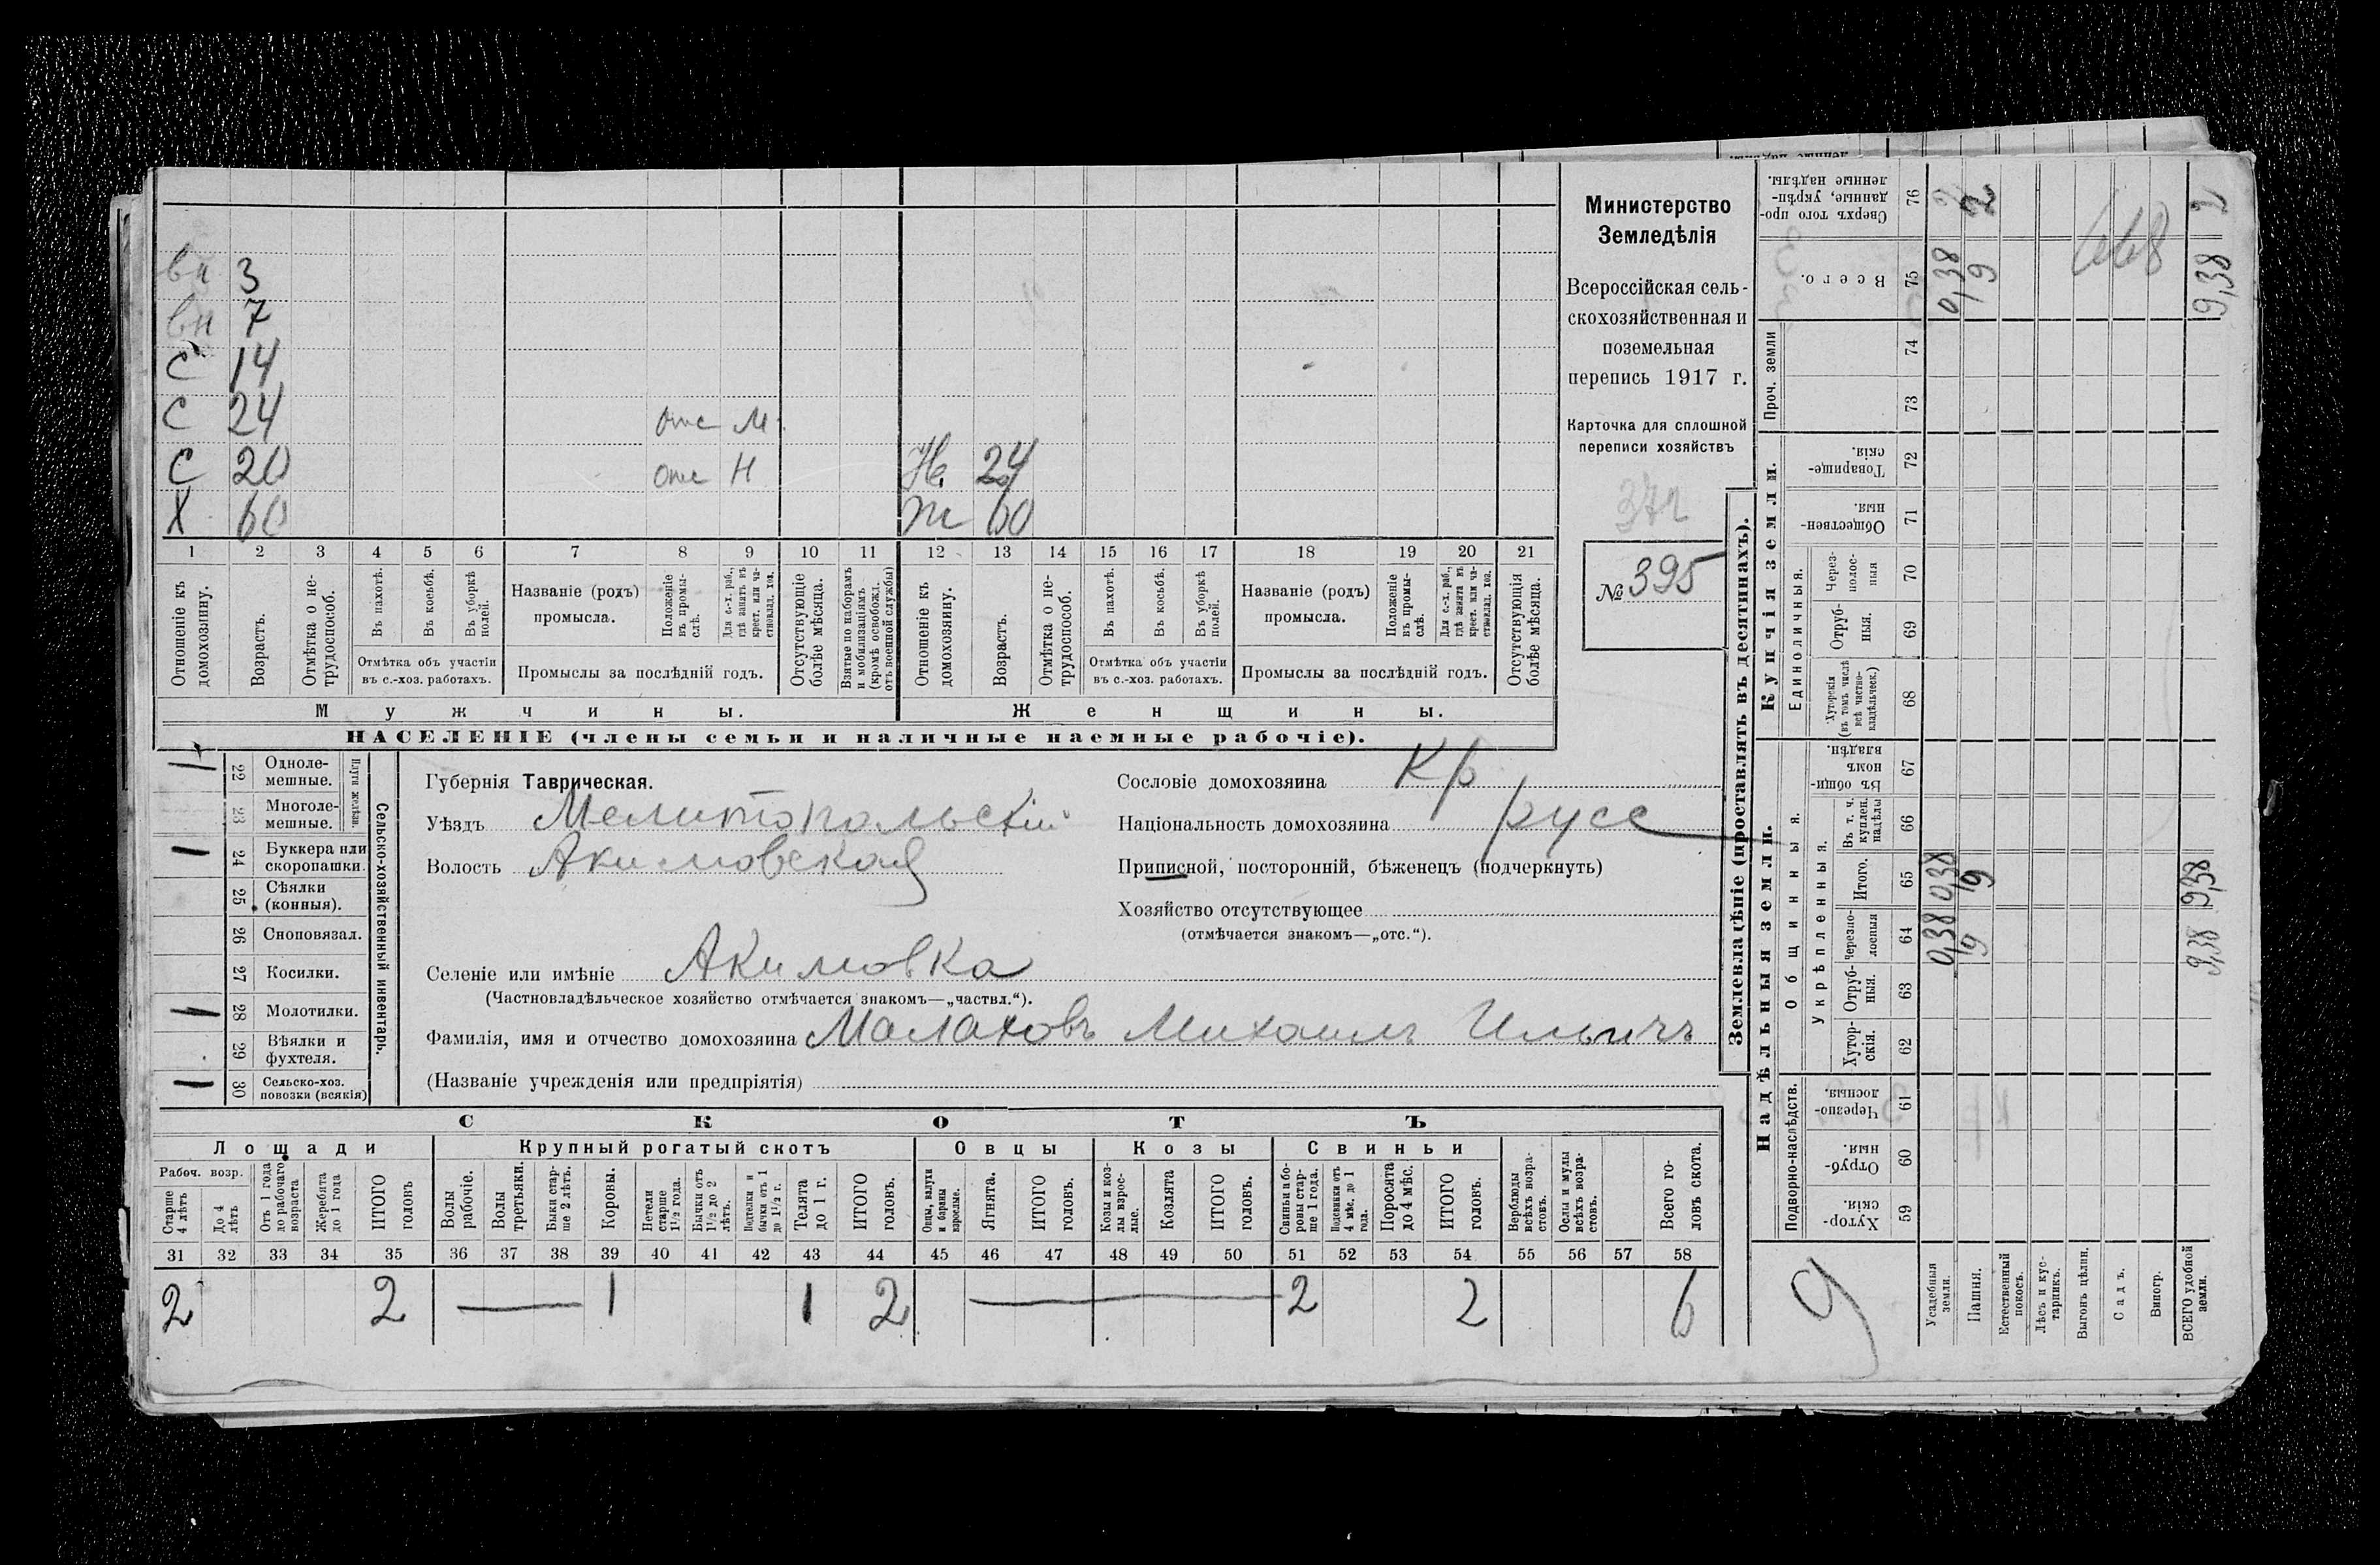 вн 3
вн 7
С 14
С 24 отс М
С 20 отс Н Не 24
Х 60 Ж 60
1 2 3 4 5 6 7 8 9 10 11 12 13 14 15 16 17 18 19 20 21
Отношеніе къ домохозяину.
Возрастъ.
Отмѣтка о не-трудоспособ.
Въ пахотѣ.
Въ косьбѣ.
Въ уборкѣ полей.
Отмѣтка объ участіи
въ с.-хоз. работахъ.
Названіе (родъ)
промысла.
Положеніе въ промы-слѣ.
Для с.-х. раб., гдѣ занятъ въ крест. или ча-стновлад. хоз.
Промыслы за послѣдній годъ.
Отсутствующіе болѣе мѣсяца.
Взятые по наборамъ и мобилизаціямъ (кромѣ освобожд. отъ военной службы)
Отношеніе къ домохозяину.
Возрастъ.
Отмѣтка о не-трудоспособ.
Въ пахотѣ.
Въ косьбѣ.
Въ уборкѣ полей.
Отмѣтка объ участіи
въ с.-хоз. работахъ.
Названіе (родъ)
промысла.
Положеніе въ промы-слѣ.
Для с.-х. раб., гдѣ занята въ крест. или ча-стновлад. хоз.
Промыслы за послѣдній годъ.
Отсутствующія болѣе мѣсяца.
Мужчины. Женщины.
НАСЕЛЕНІЕ (члены семьи и наличные наемные рабочіе).
Министерство
Земледѣлія
Всероссійская сель-
скохозяйственная и
поземельная
перепись 1917 г.
Карточка для сплошной
переписи хозяйствъ
372
№ 395
Сельско-хозяйственный инвентарь.
Плуги желѣзн.
1 22 Одноле-мешные.
23 Многоле-мешные.
1 24 Буккера или скоропашки.
25 Сѣялки (конныя).
26 Сноповязал.
27 Косилки.
1 28 Молотилки.
29 Вѣялки и фухтеля.
1 30 Сельско-хоз. повозки (всякія)
Губернія Таврическая.
Уѣздъ Мелитопольскій
Волость Акимовская
Селеніе или имѣніе Акимовка
(Частновладѣльческое хозяйство отмѣчается знакомъ—„частвл.“).
Фамилія, имя и отчество домохозяина Малаховъ Михаилъ Ильичъ
(Названіе учрежденія или предпріятія)
Сословіе домохозяина Кр
Національность домохозяина русс
Приписной, посторонній, бѣженецъ (подчеркнуть)
Хозяйство отсутствующее
(отмѣчается знакомъ—„отс.“).
СКОТЪ
Лошади Крупный рогатый скотъ Овцы Козы Свиньи
Рабоч. возр.
Старше 4 лѣтъ
До 4 лѣтъ
Отъ 1 года до рабочаго возраста
Жеребята до 1 года
ИТОГО головъ
Волы рабочіе.
Волы третьяки.
Быки стар-ше 2 лѣтъ.
Коровы.
Нетели старше 1½ года.
Бычки отъ 1½ до 2 лѣтъ.
Подтелки и бычки отъ 1 до 1½ г.
Телята до 1 г.
ИТОГО головъ.
Овцы, валухи и бараны взрослые.
Ягнята.
ИТОГО головъ.
Козы и коз-лы взрос-лые.
Козлята
ИТОГО головъ.
Свиньи и бо-ровы стар-ше 1 года.
Подсвинки отъ 4 мѣс. до 1 года.
Поросята до 4 мѣс.
ИТОГО головъ.
Верблюды всѣхъ возра-стовъ.
Ослы и мулы всѣхъ возра-стовъ.
Всего го-ловъ скота.
31 32 33 34 35 36 37 38 39 40 41 42 43 44 45 46 47 48 49 50 51 52 53 54 55 56 57 58
2 2 — 1 1 2 — 2 2 6
Землевладѣніе (проставлять въ десятинахъ).
Надѣльныя земли. Купчія земли. Проч. земли
Подворно-наслѣдств.
Общинныя.
Укрѣпленныя.
Единоличныя.
Хутор-скія. 59
Отруб-ныя. 60
Черезпо-лосныя 61
Хутор-скія. 62
Отруб-ныя. 63
Черезпо-лосныя 64
Итого. 65
Въ т. ч. куплен. надѣлы 66
Въ общи-номъ владѣн. 67
Хуторскія (въ томъ числѣ всѣ частно-владѣльческ.) 68
Отруб-ныя. 69
Через-полос-ныя 70
Обществен-ныя. 71
Товарище-скія. 72
73
74
Всего. 75
Сверхъ того про-данные, укрѣп-ленные надѣлы. 76
9
Усадебныя земли. 0,38 0,38 0,38
Пашня. 9 9 9 2
Естественный покосъ.
Лѣсъ и кус-тарникъ.
Выгонъ цѣлин.
Садъ.
Виногр.
ВСЕГО удобной земли. 9,38 9,38 9,38 2
668